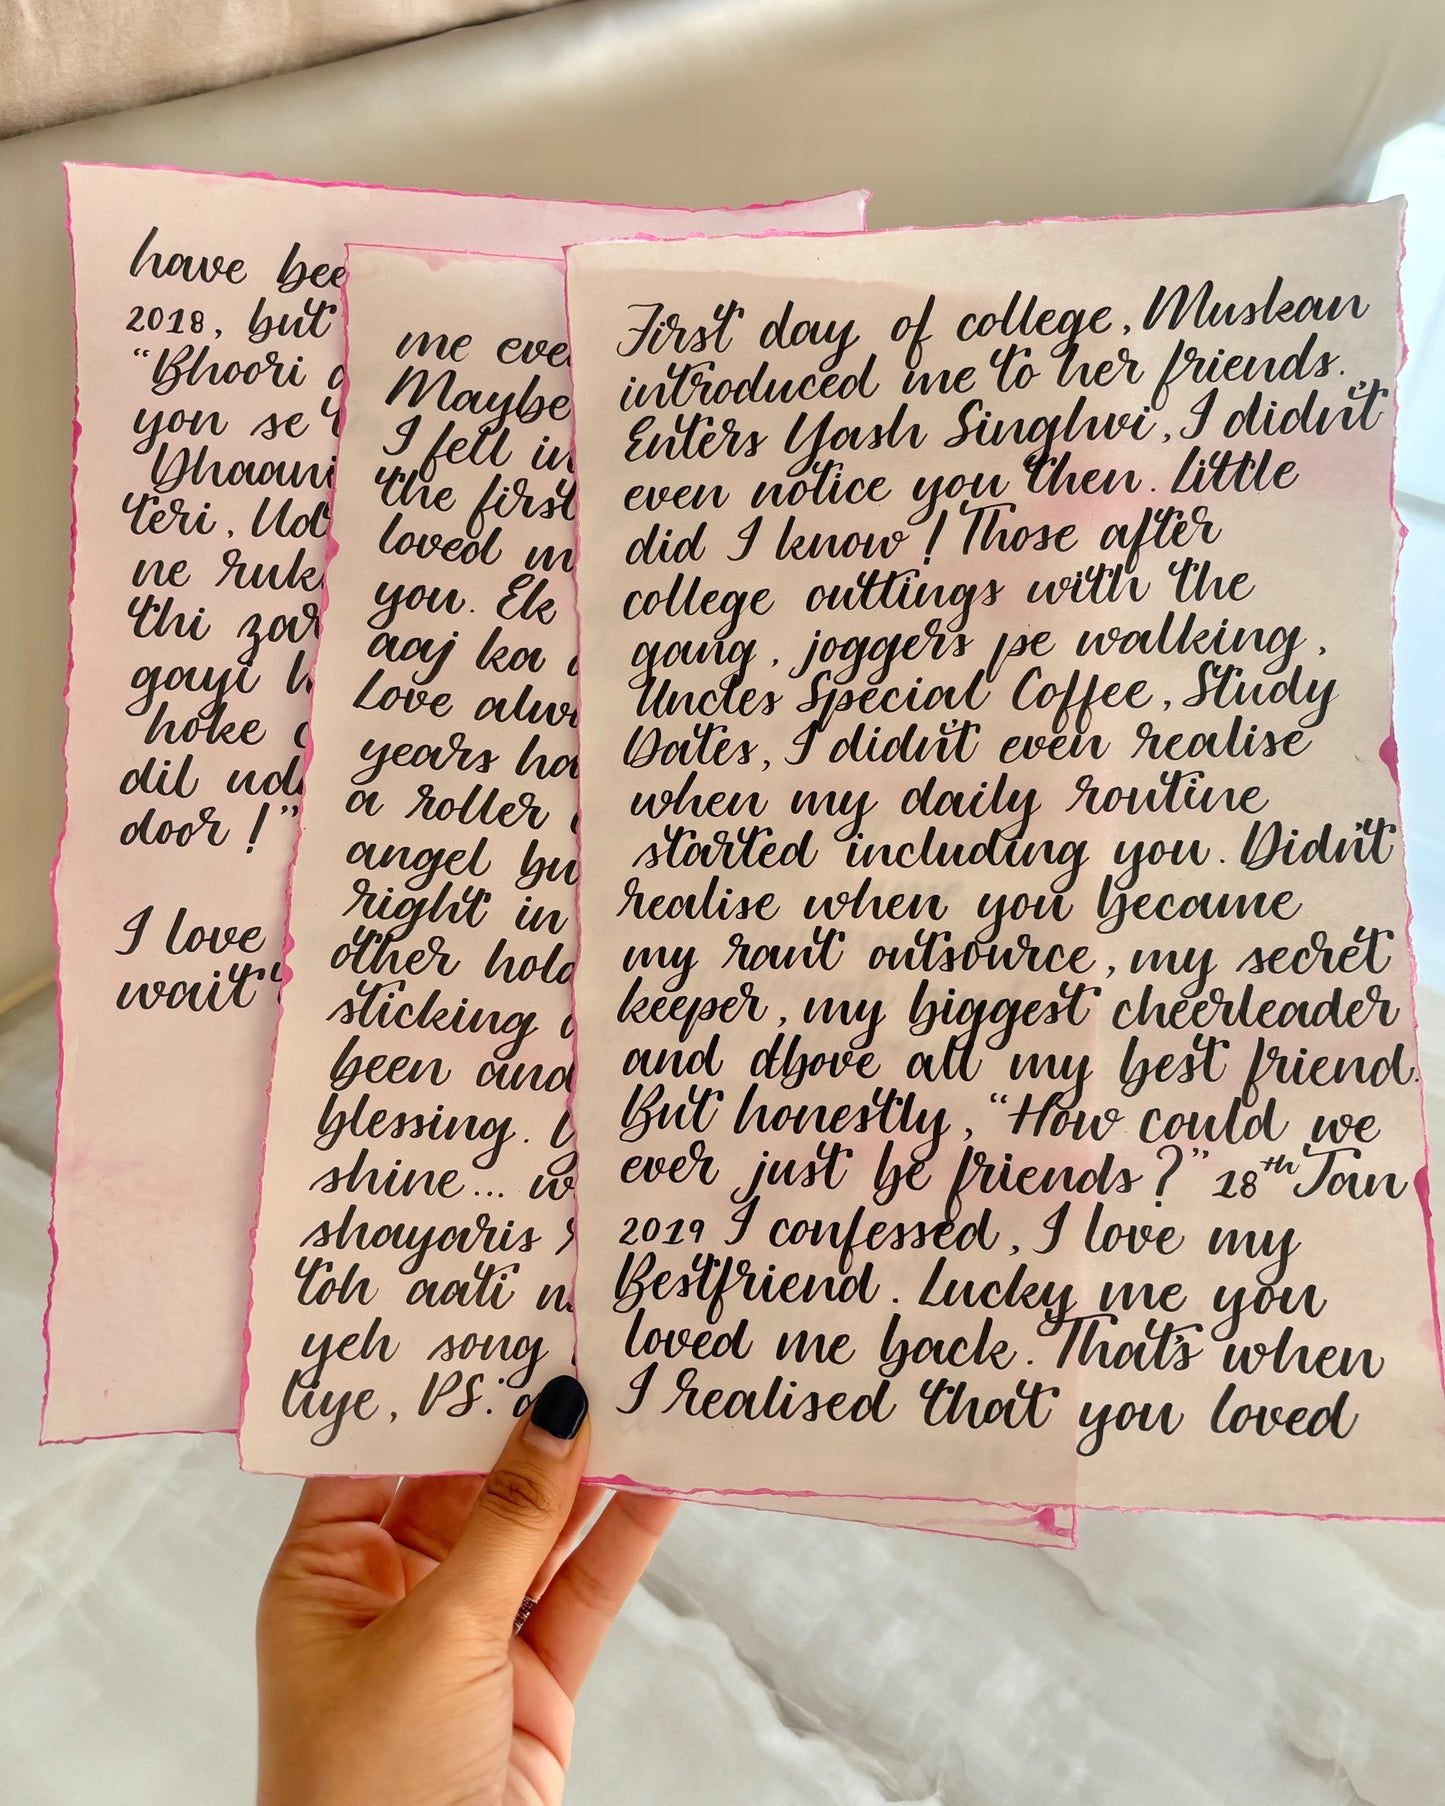 First day of college, Muskan
introduced me to her friends.
Enters Yash Singhvi, I didn't
even notice you then. Little
did I know! Those after
college outtings with the
gang, joggers pe walking,
Uncles Special Coffee, Study
Dates, I didn't even realise
when my daily routine
started including you. Didn't
realise when you became
my rant outsource, my secret
keeper, my biggest cheerleader
and above all my best friend.
But honestly, "How could we
ever just be friends?" 18th Jan
2019 I confessed, I love my
Bestfriend. Lucky me you
loved me back. That's when
I realised that you loved
me eve
Maybe
I fell in
the first
loved m
you. Ek
aaj ka
Love alw
years ha
a roller
angel bu
right in
other hold
sticking
been and
blessing.
shine... w
shayaris
toh aati n
yeh song
liye, PS:
have bee
2018, but
"Bhoori
yon se
Dhaani
teri, Ud
ne ruk
thi zar
gayi
hoke
dil ud
door!"
I love
wait